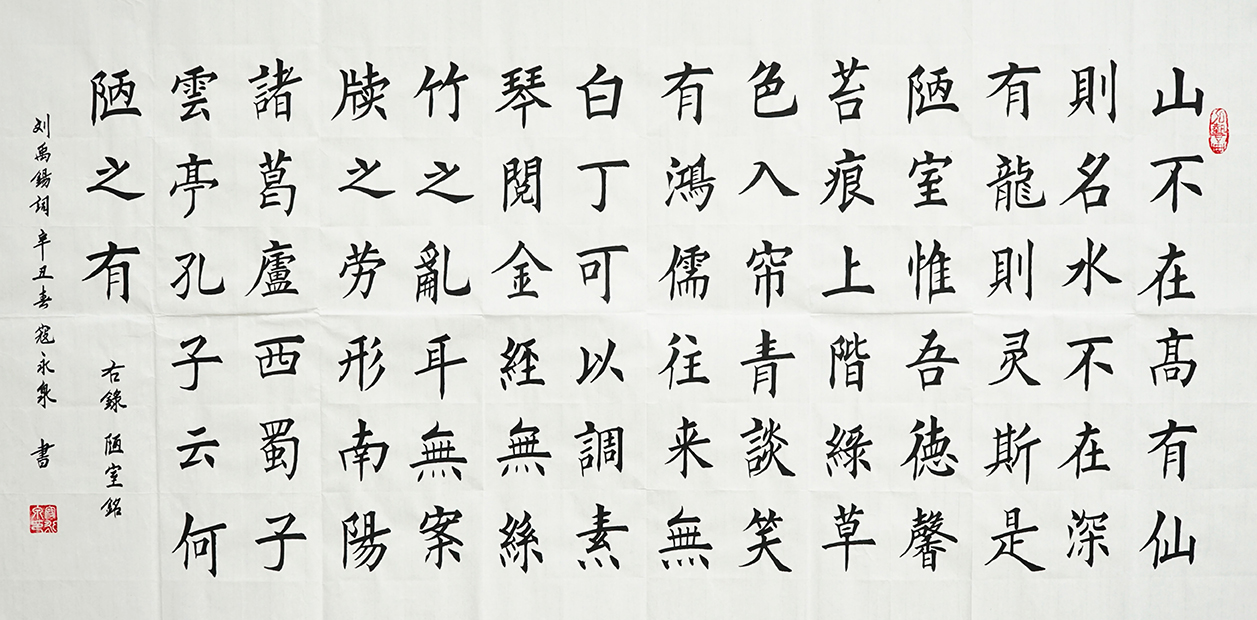 山不在髙有仙
則名水不在深
有龍則灵斯是
陋室惟吾徳馨
苔痕上階緑草
色入帘青談笑
有鴻儒往来無
白丁可以調素
琴閱金經無絲
竹之亂耳無案
牍之劳形南陽
諸葛廬西蜀子
雲亭孔子云何
陋之有
右錄陋室銘
刘禹錫詞辛丑春寇永泉書